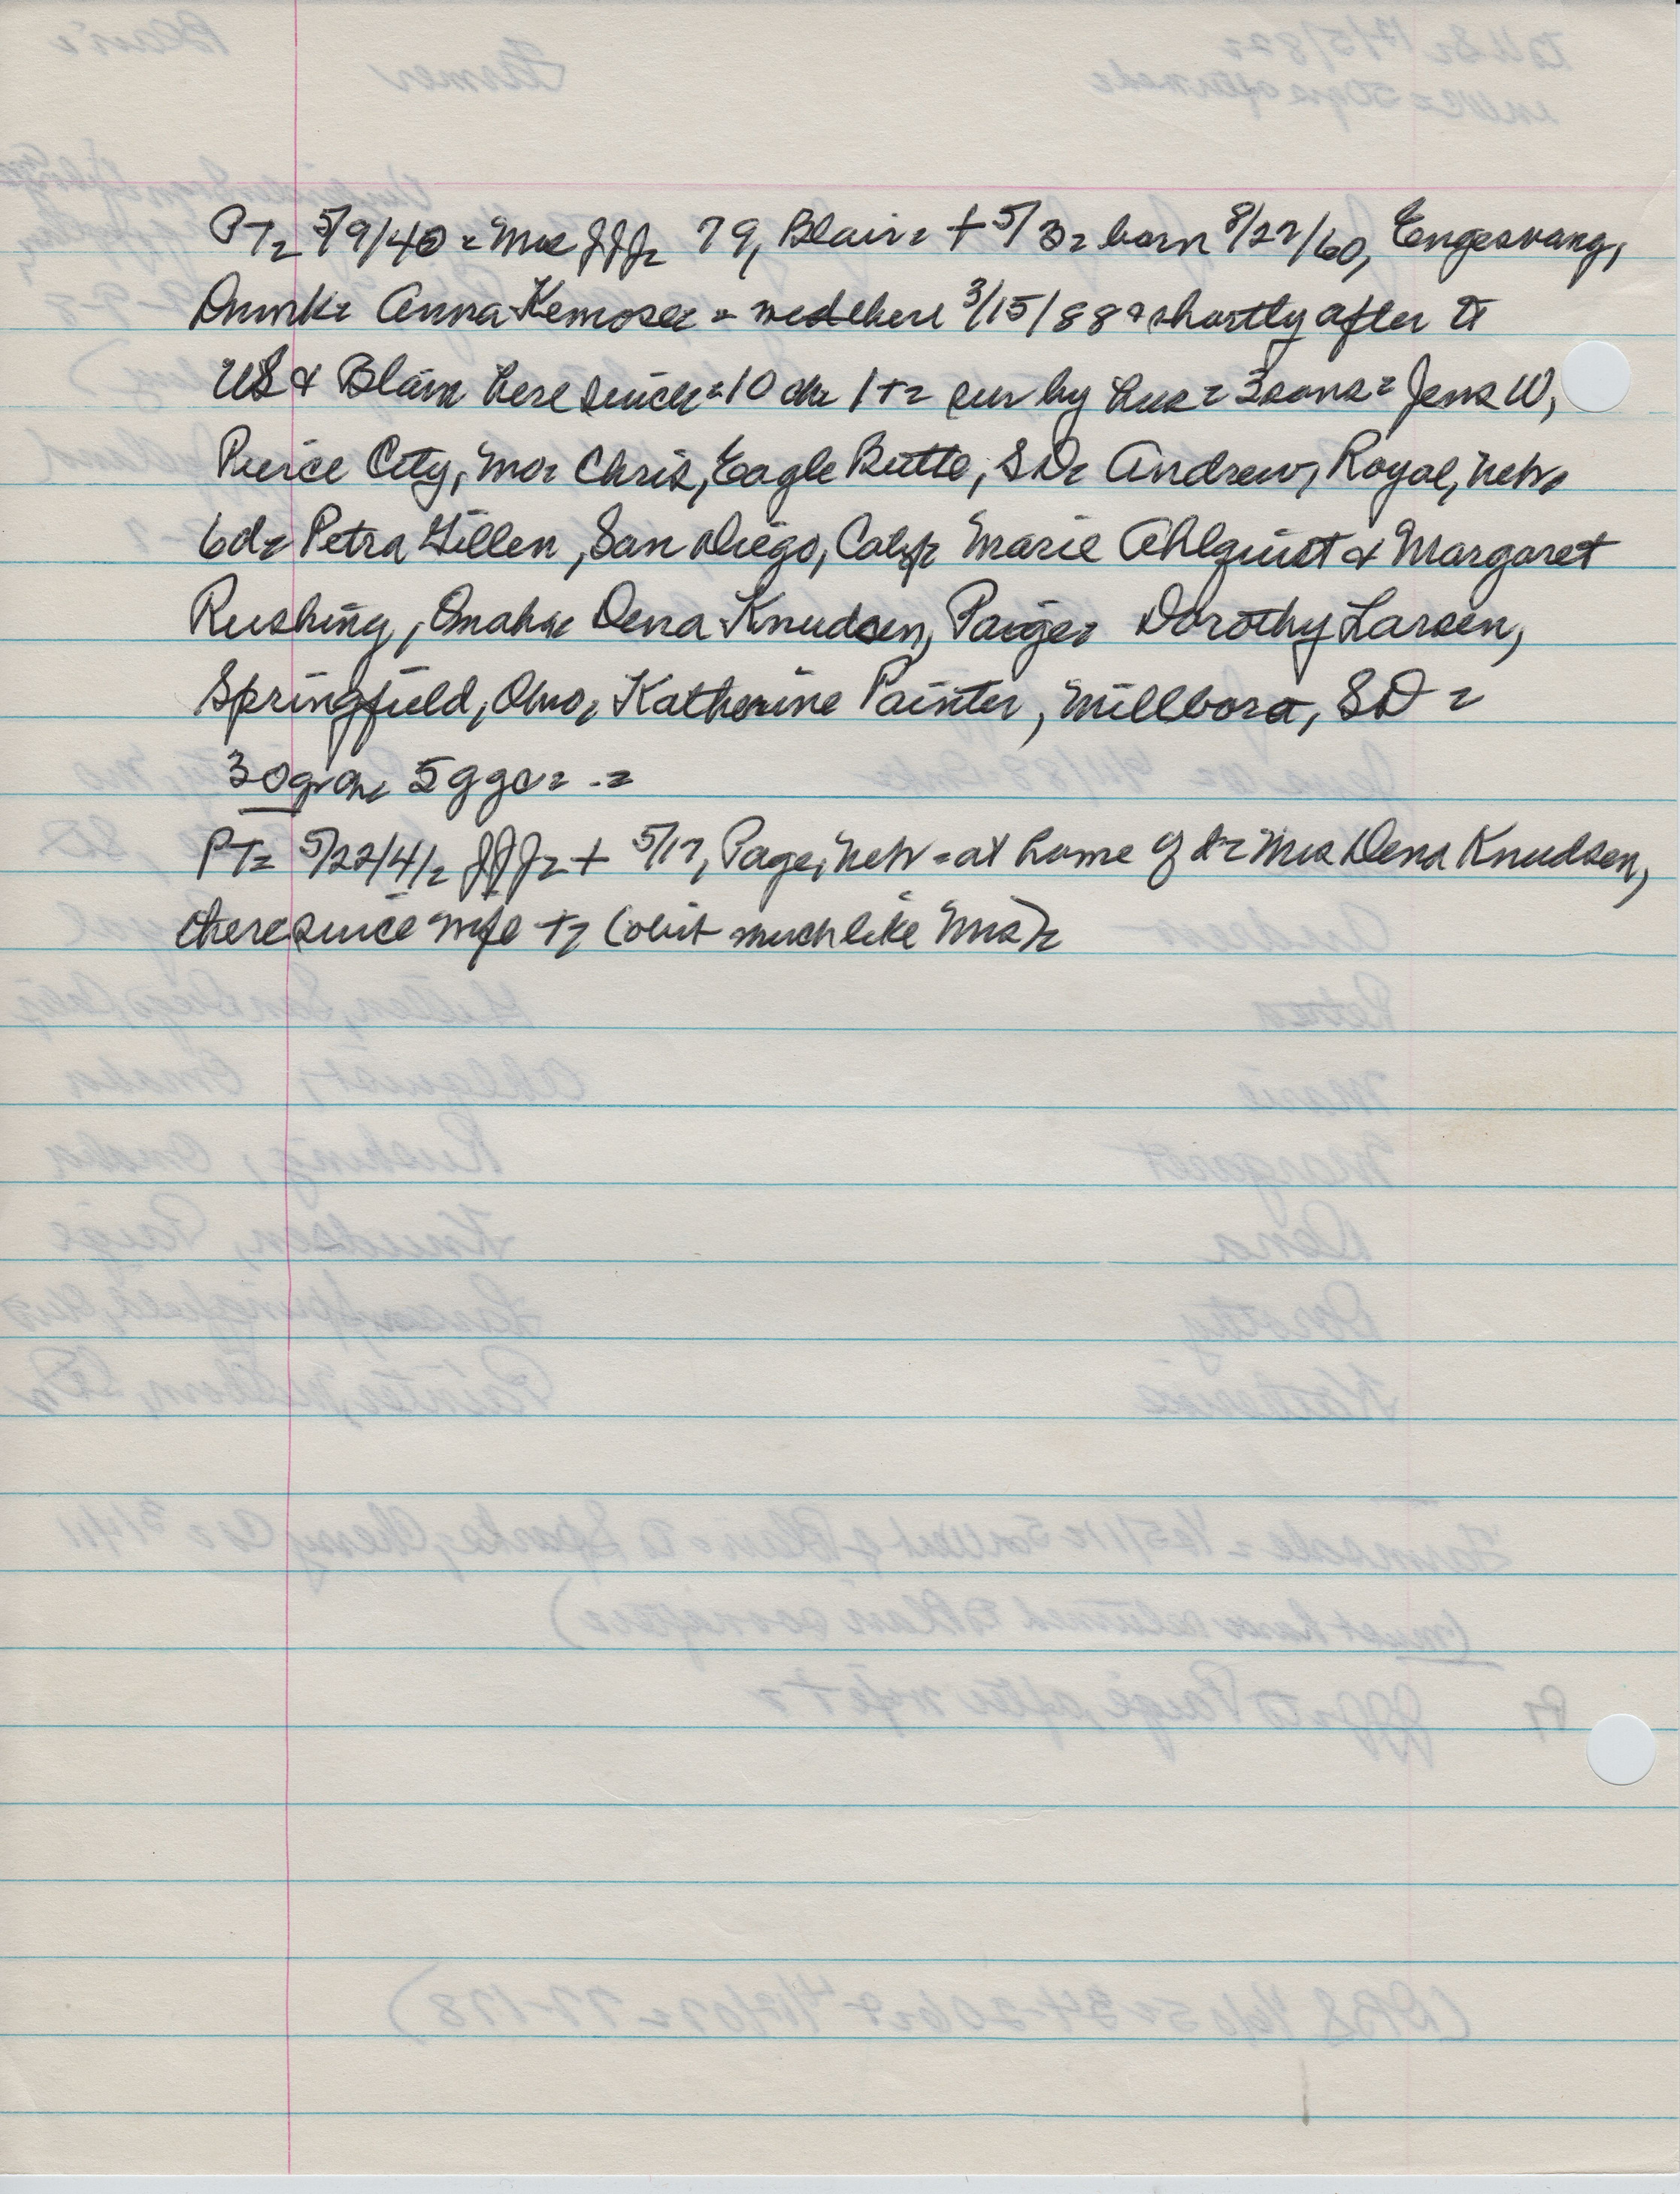 PT= 5/9/40 = Mrs JJJ= 79, Blair= + 5/3= born 8/22/60, Engesvang,
Dnmrk= Anna Kemosee = med there 3/15/88 & shortly after to
US & Blair here since = 10 ch= 1 += sur by hus= 3 sons= Jens W,
Pierce City, Mo= Chris, Eagle Butte, SD= Andrew, Royal, Neb=
6d= Petra Gillen, San Diego, Calif= Marie Ahlquist & Margaret
Rushing, Omaha= Dena Knudsen, Paige= Dorothy Larsen,
Springfield, Ohio, Katherine Painter, Millboro, SD =
30 gr ch, 5 ggc= . =
PT= 5/22/41= JJJ= + 5/17, Page, Neb = at home of d= Mrs Dena Knudsen,
there since wife += (obit much like Mrs)=